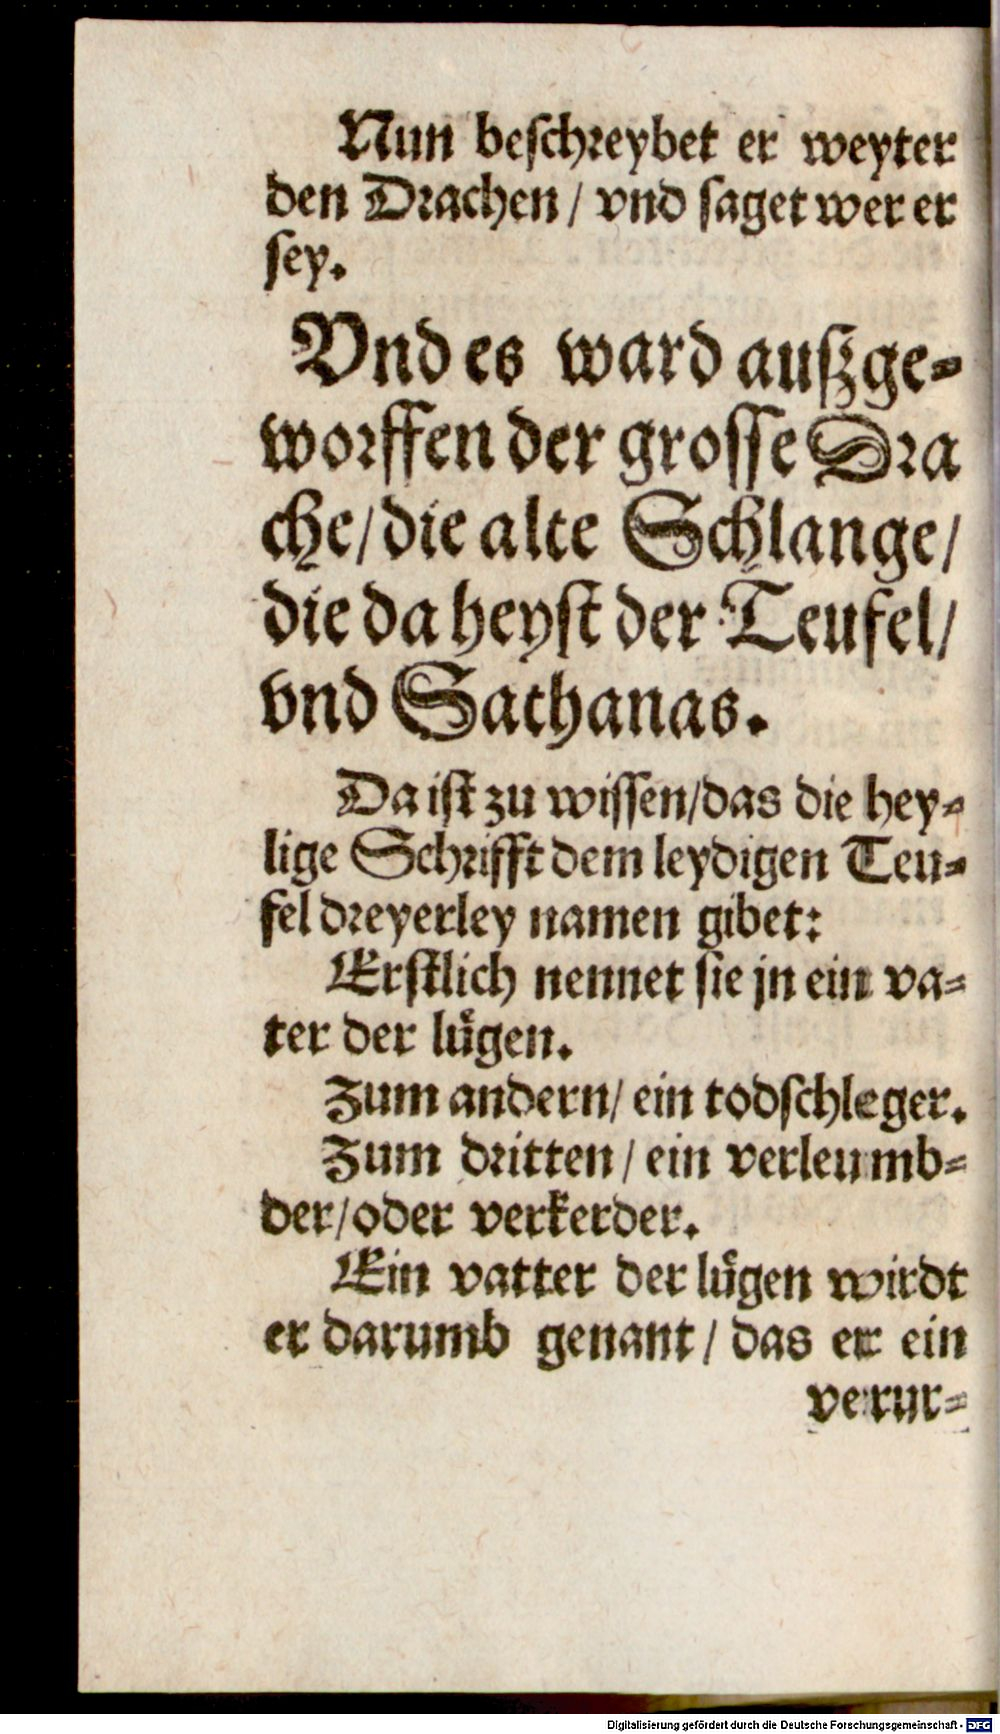 Nun beschreybet er weyter
den Drachen / vnd saget wer er
sey.
Vnd es ward außge-
worffen der grosse Dra
che / die alte Schlange /
die da heyst der Teufel /
vnd Sathanas.
Da ist zu wissen / das die hey-
lige Schrifft dem leydigen Teu-
fel dreyerley namen gibet:
Erstlich nennet sie jn ein va-
ter der lůgen.
Zum andern / ein todschleger.
Zum dritten / ein verleumb-
der / oder verkerder.
Ein vatter der lůgen wirdt
er darumb genant / das er ein
verur-
Digitalisierung gefördert durch die Deutsche Forschungsgemeinschaft - DFG